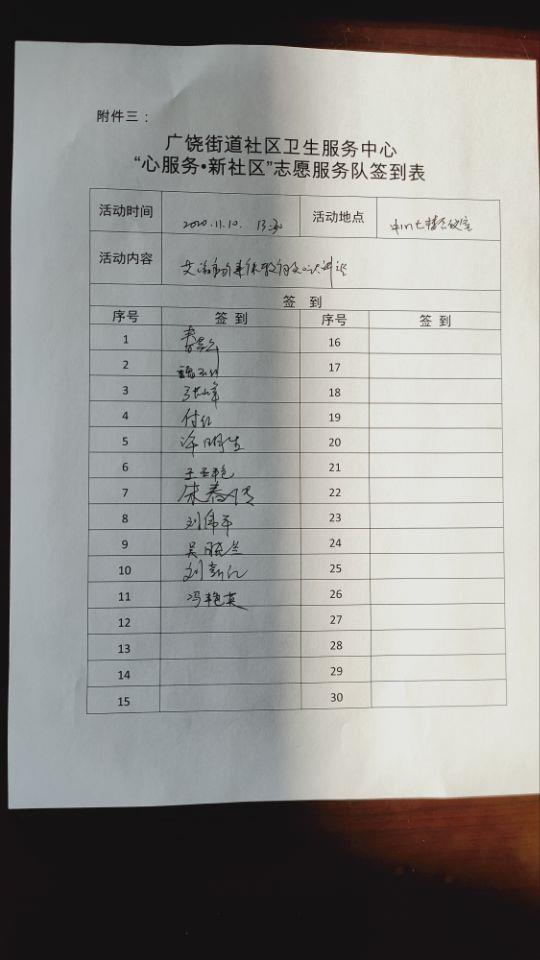 附件三：
广饶街道社区卫生服务中心
“心服务•新社区”志愿服务队签到表
活动时间 2020.11.10. 13:30 活动地点
活动内容
签 到
序号 签 到 序号 签 到
1 16
2 17
3 18
4 付红 19
5 许明生 20
6 王玉艳 21
7 宋春 22
8 刘伟平 23
9 吴晓兰 24
10 刘新红 25
11 冯艳英 26
12 27
13 28
14 29
15 30